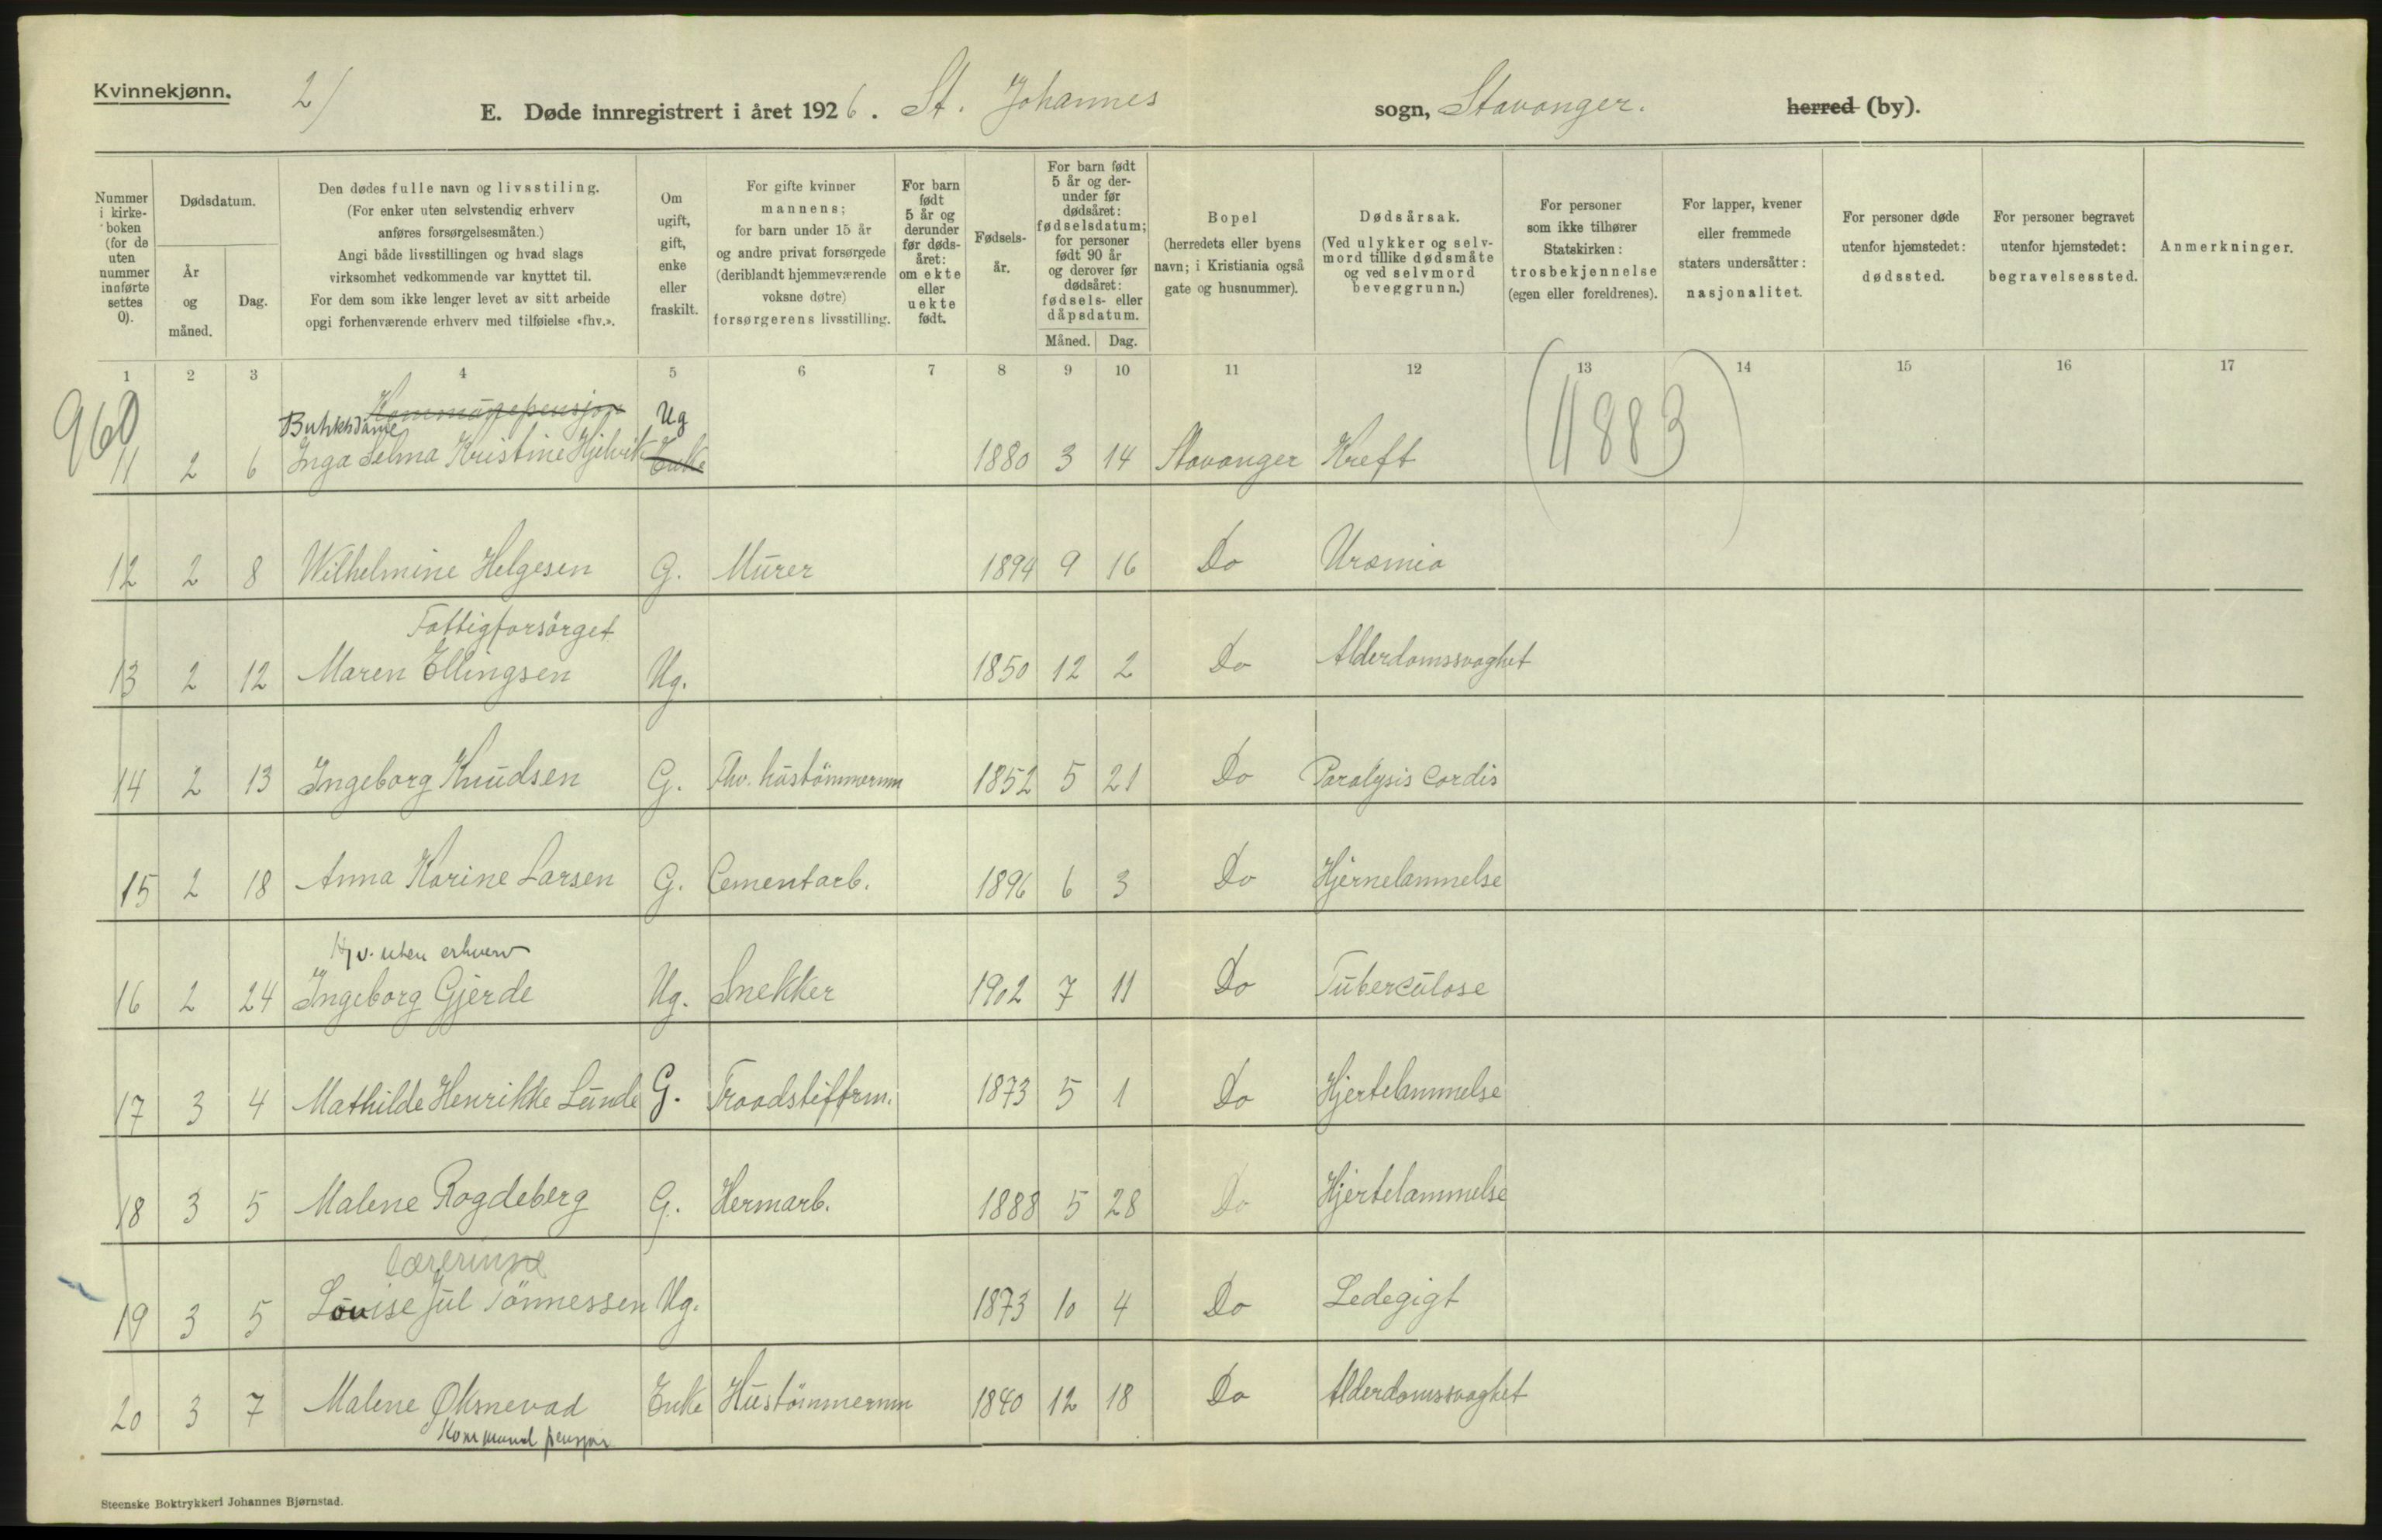 Kvinnekjønn.
2/
E. Døde innregistrert i året 1926. St. Johannes sogn, Stavanger. herred (by).
Nummer i kirke- boken (for de uten nummer innførte settes 0).
Dødsdatum.
År og måned.
Dag.
Den dødes fulle navn og livsstiling.
(For enker uten selvstendig erhverv
anføres forsørgelsesmåten.)
Angi både livsstillingen og hvad slags
virksomhet vedkommende var knyttet til.
For dem som ikke lenger levet av sitt arbeide
opgi forhenværende erhverv med tilføielse «fhv.».
Om ugift, gift, enke eller fraskilt.
For gifte kvinner
mannens;
for barn under 15 år
og andre privat forsørgede
(deriblandt hjemmeværende
voksne døtre)
forsørgerens livsstilling.
For barn født 5 år og derunder før døds- året: om ekte eller uekte født.
Fødsels- år.
For barn født
5 år og der-
under før
dødsåret:
fødselsdatum;
for personer
født 90 år
og derover før
dødsåret:
fødsels- eller
dåpsdatum.
Måned. Dag.
Bopel
(herredets eller byens
navn; i Kristiania også
gate og husnummer).
Dødsårsak.
(Ved ulykker og selv-
mord tillike dødsmåte
og ved selvmord
beveggrunn.)
For personer
som ikke tilhører
Statskirken:
trosbekjennelse
(egen eller foreldrenes).
For lapper, kvener
eller fremmede
staters undersåtter:
nasjonalitet.
For personer døde
utenfor hjemstedet:
dødssted.
For personer begravet
utenfor hjemstedet:
begravelsessted.
Anmerkninger.
1 2 3 4 5 6 7 8 9 10 11 12 13 14 15 16 17
960
Kommunepensjon
Butikkdame Ug
11 2 6 Inga Selma Kristine Hjelvik Enke 1880 3 14 Stavanger Kreft
(11883)
12 2 8 Wilhelmine Helgesen G. Murer 1894 9 16 Do Uræmia
Fattigforsørget
13 2 12 Maren Ellingsen Ug. 1850 12 2 Do Alderdomssvaghet
14 2 13 Ingeborg Knudsen G. Fhv. hustömmerm 1852 5 21 Do Paralysis Cordis
15 2 18 Anna Karine Larsen G. Cementarb. 1896 6 3 Do Hjernelammelse
Hjv. uten erhverv
16 2 24 Ingeborg Gjerde Ug. Snekker 1902 7 11 Do Tuberculose
17 3 4 Mathilde Henrikke Lunde G. Traadstiftrm. 1873 5 1 Do Hjertelammelse
18 3 5 Malene Rogdeberg G. Hermarb. 1888 5 28 Do Hjertelammelse
Lærerinne
19 3 5 Lovise Jul Tönnessen Ug. 1873 10 4 Do Ledegigt
20 3 7 Malene Øksnevad Enke Hustömmerm 1840 12 18 Do Alderdomssvaghet
Kommunal pensjon
Steenske Boktrykkeri Johannes Bjørnstad.